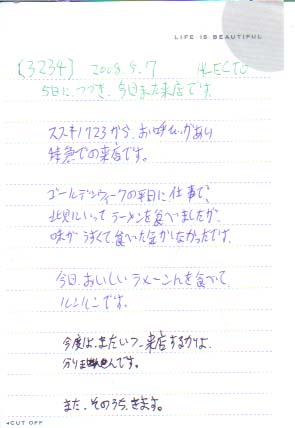 LIFE IS BEAUTIFUL
[3234] 2008.5.7 ELECTO
5日に、つづき、今日また来店です。
ススキノ23から、お呼びがあり
特急での来店です。
ゴールデンウィークの平日に仕事で、
北見にいってラーメンを食べましたが、
味がうすくて、食べた気がしなかったです。
今日、おいしいラメーんを食べて、
ルンルンです。
今度は、まだいつ来店するかは、
分りませんです。
また、そのうち、きます。
◂CUT OFF